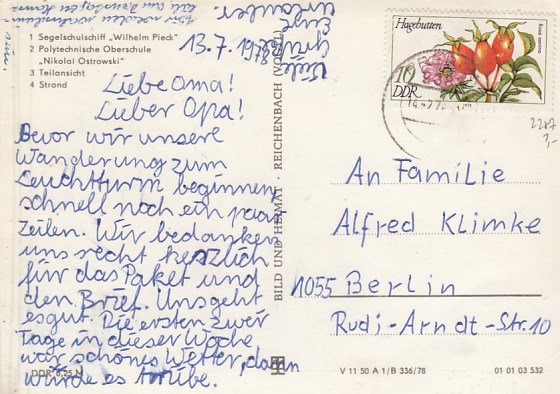 1 Segelschulschiff „Wilhelm Pieck"
2 Polytechnische Oberschule
„Nikolai Ostrowski"
3 Teilansicht
4 Strand
13.7.1978
Liebe Oma!
Lieber Opa!
Bevor wir unsere
Wanderung zum
Leuchtturm beginnen,
schnell noch ein paar
Zeilen. Wir bedanken
uns recht herzlich
für das Paket und
den Brief. Uns geht
es gut. Die ersten zwei
Tage in dieser Woche
war schönes Wetter, dann
wurde es trübe.
DDR 0,25 M
BILD UND HEIMAT · REICHENBACH (VOGTL)
Hagebutten
Rosa canina
10
DDR
2287
3,-
An Familie
Alfred Klimke
1055 Berlin
Rudi-Arndt-Str. 10
V 11 50 A 1/B 336/78
01 01 03 532